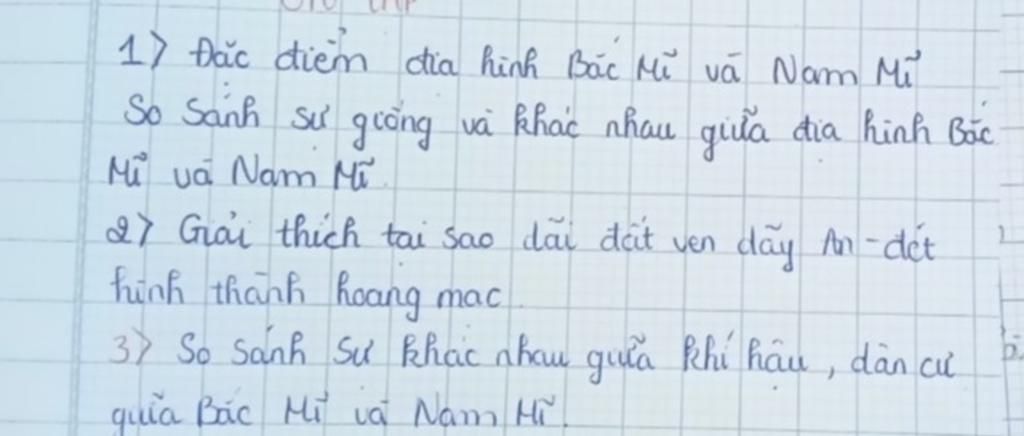 1) Đặc điểm địa hình Bắc Mĩ và Nam Mĩ
So sánh sự giống và khác nhau giữa địa hình Bắc
Mĩ và Nam Mĩ.
2) Giải thích tại sao dải đất ven dãy An-đét
hình thành hoang mạc.
3) So sánh sự khác nhau giữa khí hậu, dân cư
giữa Bắc Mĩ và Nam Mĩ.